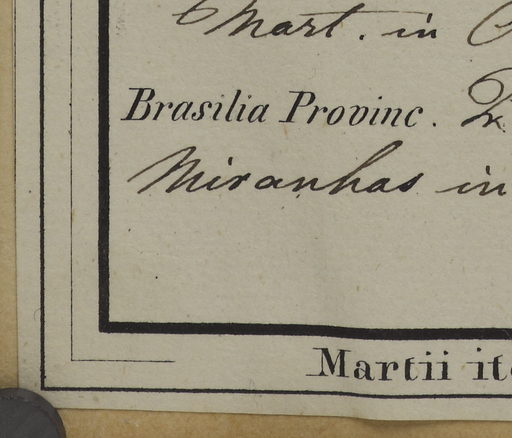 Mart. in
Brasilia Provinc.
Miranhas in
Martii it